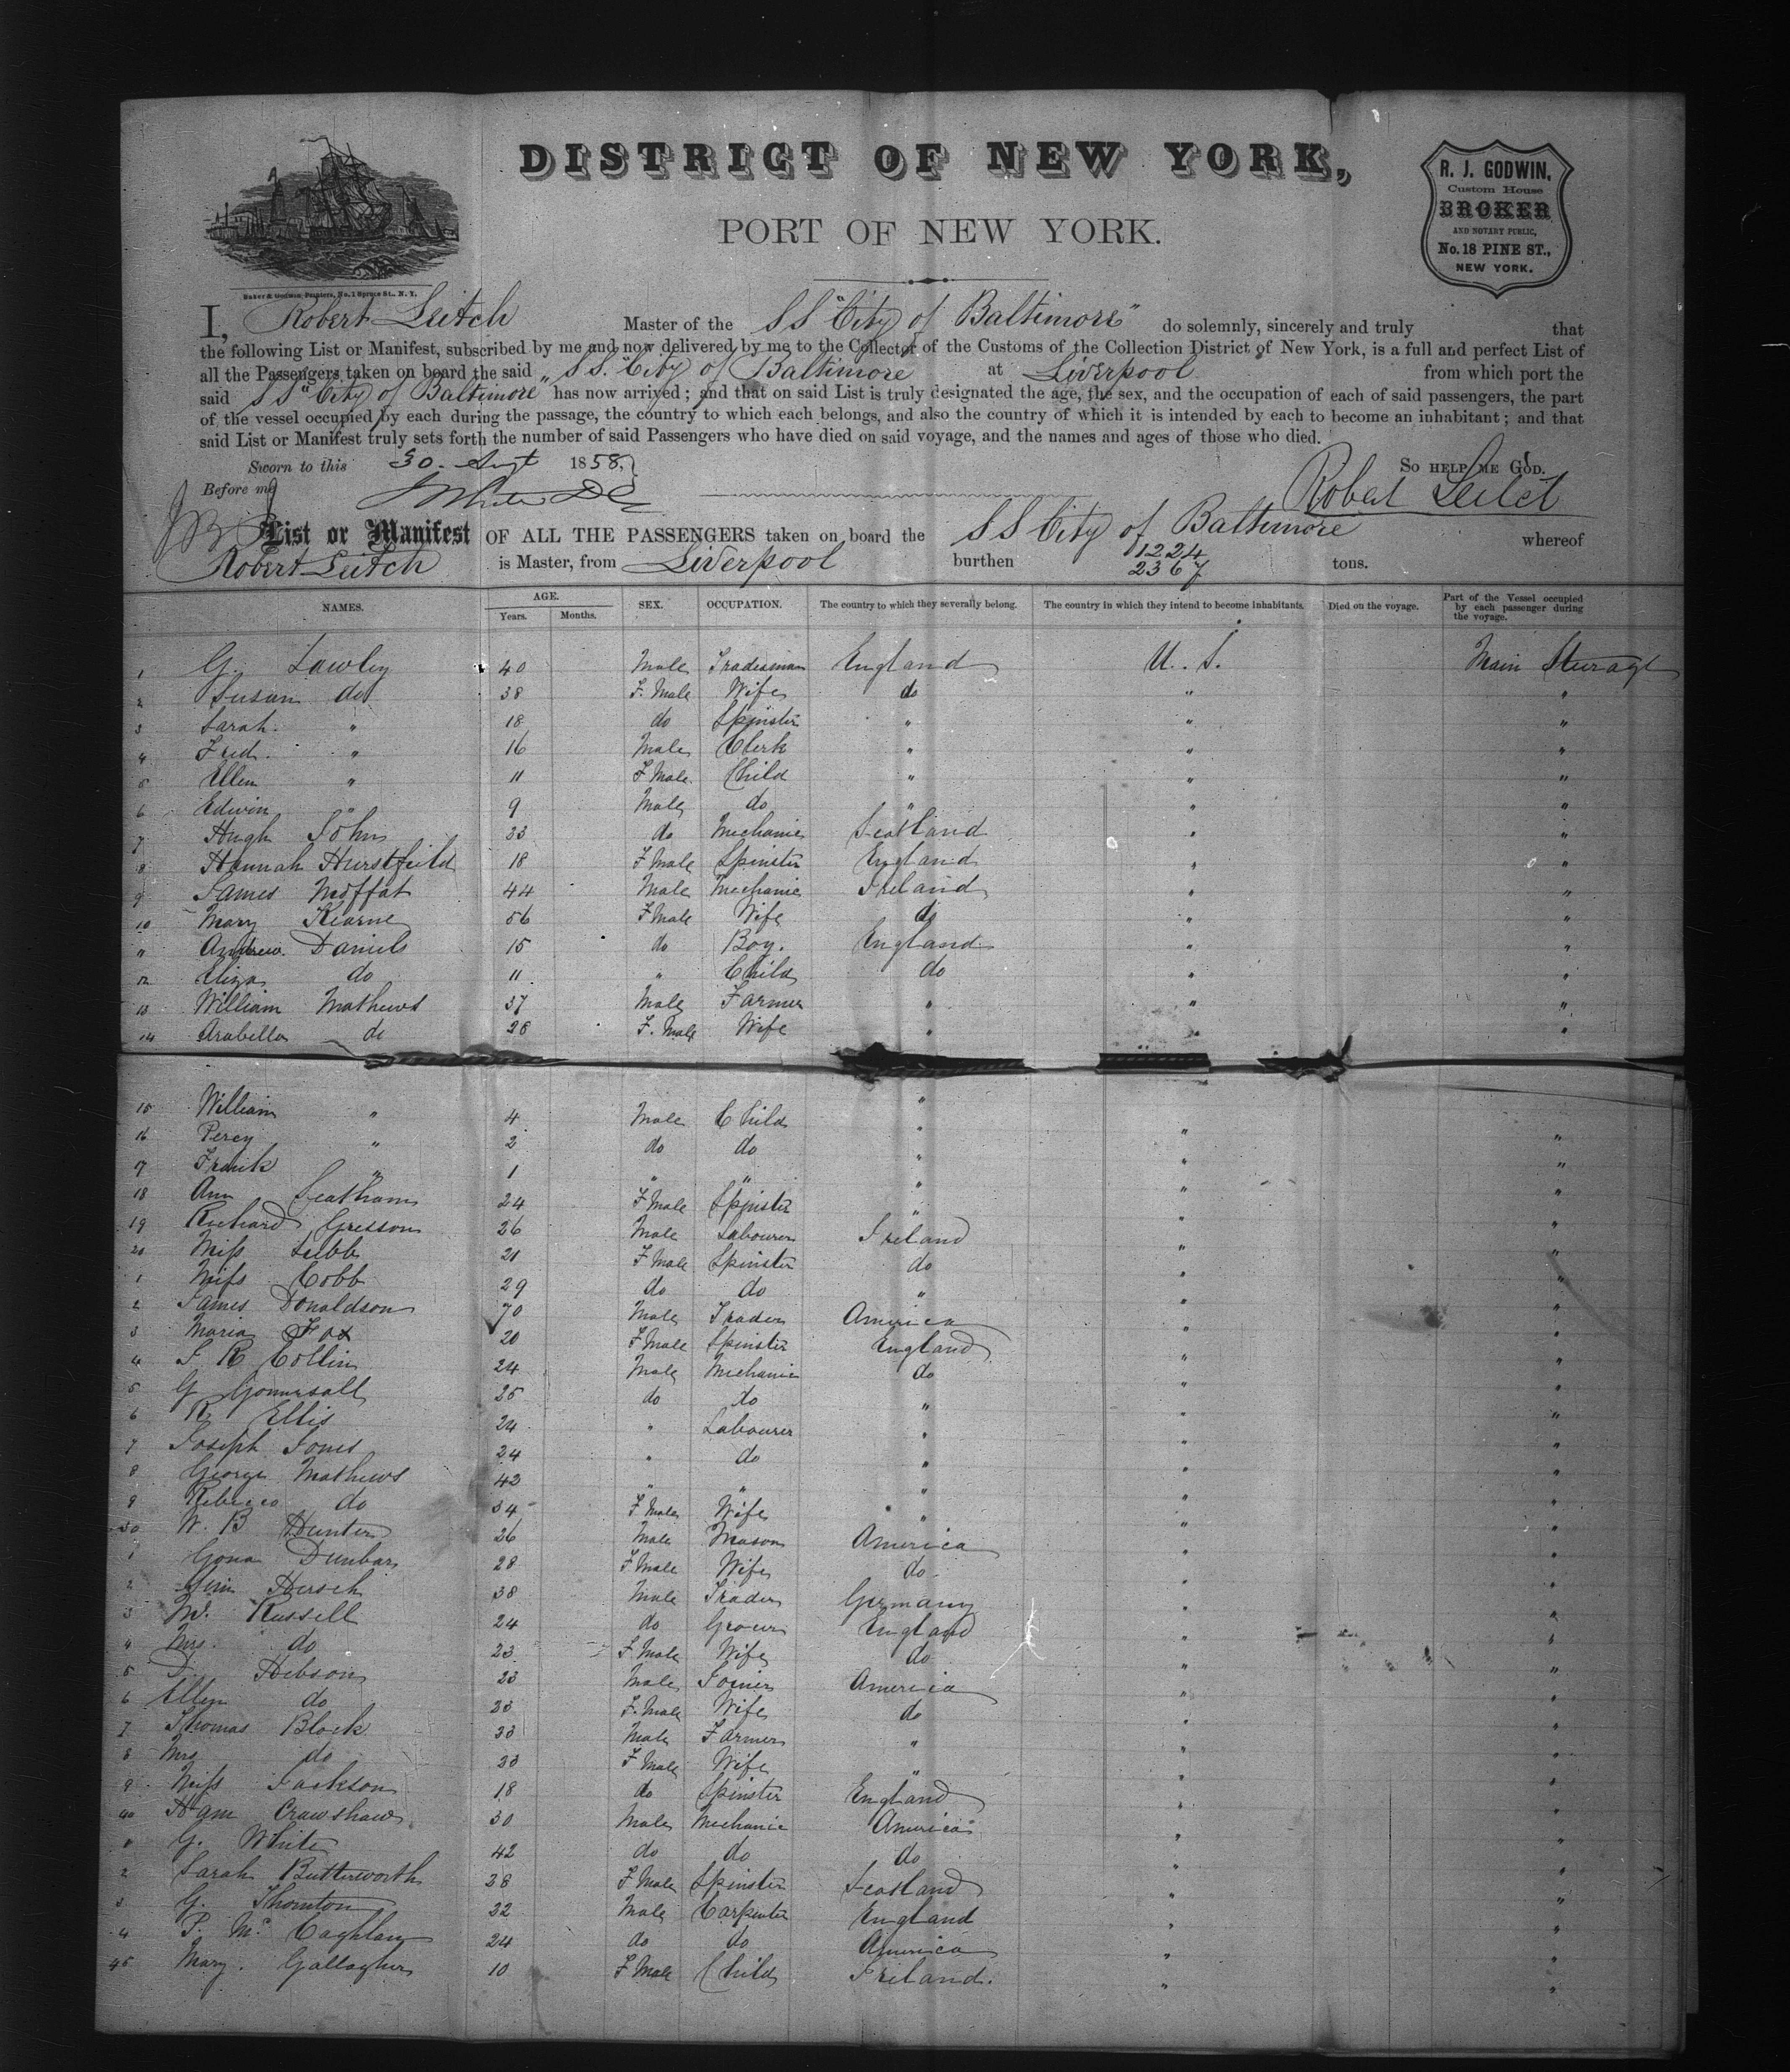 DISTRICT OF NEW YORK,
PORT OF NEW YORK.
R. J. GODWIN,
Custom House
BROKER
AND NOTARY PUBLIC,
No. 18 PINE ST.,
NEW YORK.
Baker & Godwin, Printers, No. 1 Spruce St., N. Y.
I, Robert Leitch Master of the SS "City of Baltimore" do solemnly, sincerely and truly that
the following List or Manifest, subscribed by me and now delivered by me to the Collector of the Customs of the Collection District of New York, is a full and perfect List of
all the Passengers taken on board the said "SS. City of Baltimore at Liverpool from which port the
said SS "City of Baltimore" has now arrived; and that on said List is truly designated the age, the sex, and the occupation of each of said passengers, the part
of the vessel occupied by each during the passage, the country to which each belongs, and also the country of which it is intended by each to become an inhabitant; and that
said List or Manifest truly sets forth the number of said Passengers who have died on said voyage, and the names and ages of those who died.
Sworn to this 30. Augt 1858. So HELP ME GOD.
Before me Robert Leitch
List or Manifest OF ALL THE PASSENGERS taken on board the SS City of Baltimore whereof
Robert Leitch is Master, from Liverpool burthen 1224 2367 tons.
NAMES. AGE. Years. Months. SEX. OCCUPATION. The country to which they severally belong. The country in which they intend to become inhabitants. Died on the voyage. Part of the Vessel occupied by each passenger during the voyage.
1 G. Lawley 40 Male Tradesman England U. S. Main Sturage
2 Susan do 38 F. Male Wife do " "
3 Sarah " 18 do Spinster " " "
4 Fred. " 16 Male Clerk " " "
5 Ellen " 11 F Male Child " " "
6 Edwin " 9 Male do " " "
7 Hugh John 33 do Mechanic Scotland " "
8 Hannah Hurstfield 18 F Male Spinster England " "
9 James Moffat 44 Male Mechanic Ireland " "
10 Mary Kearne 56 F Male Wife do " "
11 Andrew Daniels 15 do Boy. England " "
12 Eliza do 11 " Child do " "
13 William Mathews 37 Male Farmer " " "
14 Arabella do 28 F. Male Wife " " "
15 William " 4 Male Child " " "
16 Percy " 2 do do " " "
17 Frank " 1 " " " " "
18 Ann Seatham 24 F Male Spinster " " "
19 Richard Gresson 26 Male Labourer Ireland " "
20 Miss Lebb 21 F Male Spinster do " "
1 Miss Cobb 29 do do " " "
2 James Donaldson 70 Male Trader America " "
3 Maria Fox 20 F Male Spinster England " "
4 J R Collin 24 Male Mechanic do " "
5 G Gomersall 25 do do " " "
6 R Ellis 24 " Labourer " " "
7 Joseph Jones 24 " do " " "
8 George Mathews 42 " " " " "
9 Rebecca do 34 F Male Wife " " "
30 W. B Hunter 26 Male Mason America " "
1 Dunbar 28 F Male Wife do " "
2 Hersch 38 Male Trader Germany " "
3 Mr. Russell 24 do Grocer England " "
4 Mrs. do 23 F. Male Wife do " "
5 Hebson 23 Male Joiner America " "
6 Ellen do 23 F. Male Wife do " "
7 Thomas Block 33 Male Farmer " " "
8 Mrs do 33 F Male Wife " " "
9 Miss Jackson 18 do Spinster England " "
40 Ham Crawshaw 30 Male Mechanic America " "
1 G. White 42 do do do " "
2 Sarah Butterworth 28 F Male Spinster Scotland " "
3 G. Thornton 22 Male Carpenter England " "
4 P. Mc Caghlan 24 do do America " "
45 Mary. Gallagher 10 F Male Child Ireland. " "